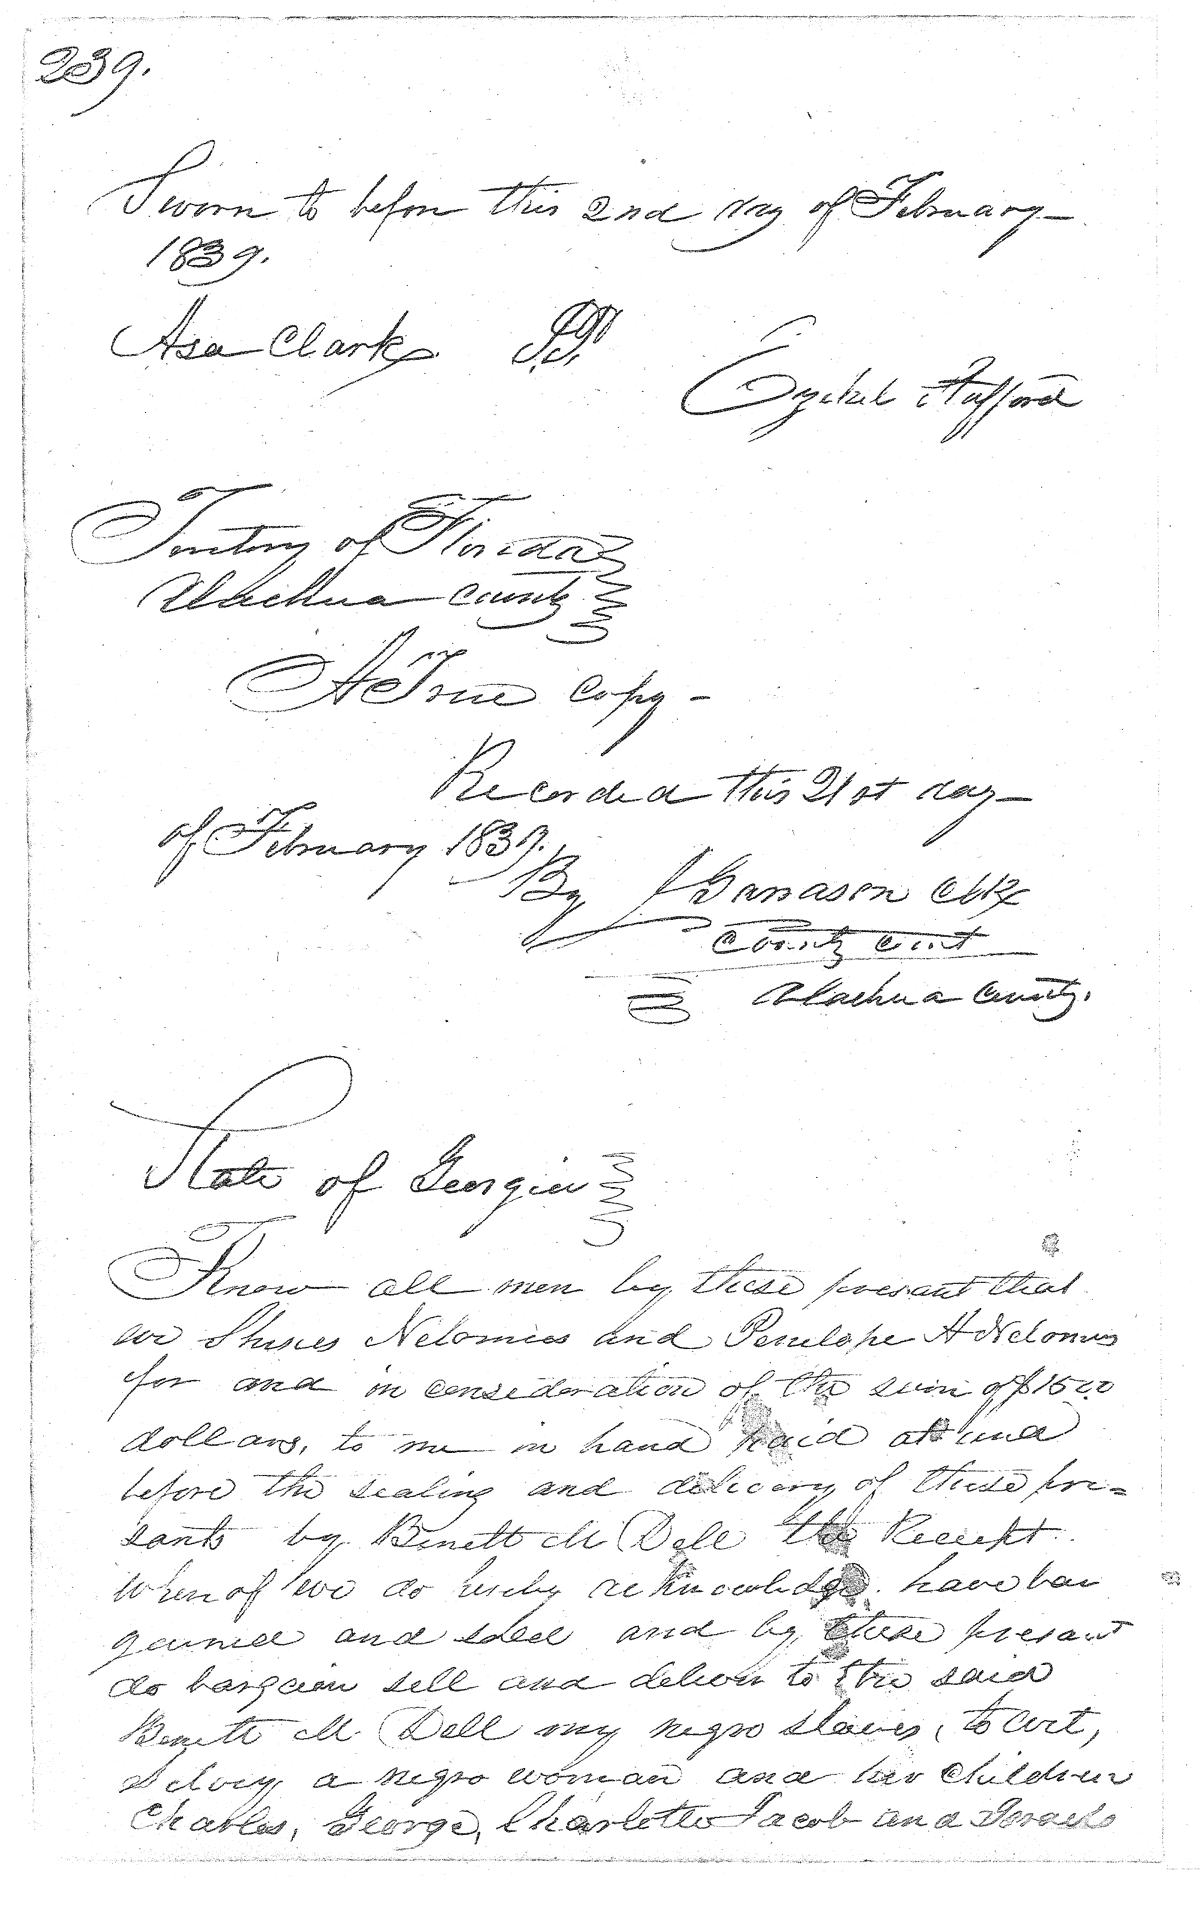 239.
Sworn to before this 2nd day of February
1839.
Asa Clark J.P.
Ezekel Stafford
Territory of Florida
Alachua County
A True Copy -
Recorded this 21st day
of February 1839.
By Clk
County Court
Alachua County.
State of Georgia
Know all men by these presant that
we Nelomies and Penelope A Nelomies
for and in consideration of the sum of $1500
dollars, to me in hand paid at and
before the sealing and delivery of these pre=
sants by Benett M Dell the Receipt
whereof we do hereby acknowledge have bar
gained and sold and by these presant
do bargain sell and deliver to the said
Benett M Dell my negro slaves, to wit,
a negro woman and her Children
Charles, George, Charlotte Jacob and